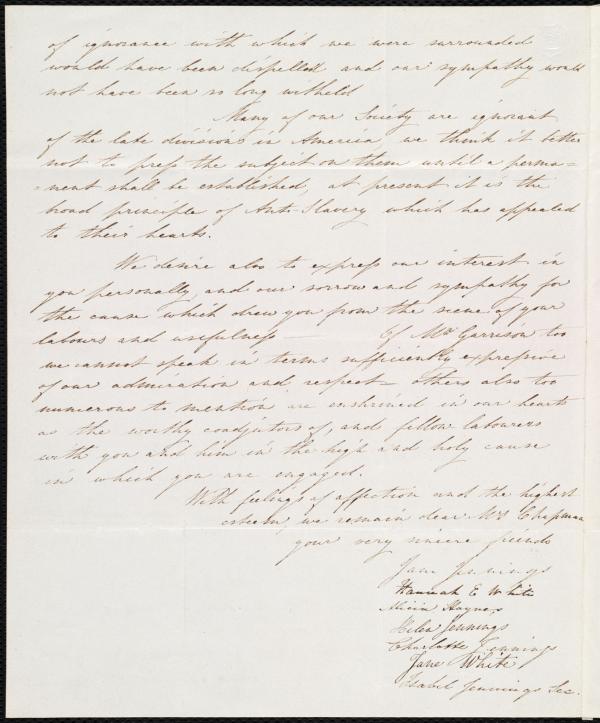 of ignorance with which we were surrounded
would have been dispelled and our sympathy would
not have been so long witheld
Many of our Society are ignorant
of the late divisions in America, we think it better
not to press the subject on them until a perma=
=nent shall be established, at present it is the
broad principle of Anti Slavery which has appealed
to their hearts.
We desire also to express our interest in
you personally, and our sorrow and sympathy for
the cause which drew you from the scene of your
labours and usefulness — Of Mr. Garrison too
we cannot speak in terms sufficiently expressive
of our admiration and respect — others also too
numerous to mention are enshrined in our hearts
as the worthy coadjutors of, and fellow labourers
with you and him in the high and holy cause
in which you are engaged.
With feelings of affection and the highest
esteem, we remain dear Mrs. Chapman
your very sincere friends
Jane Jennings
Hannah E White
Maria Haynes
Helen Jennings
Charlotte Jennings
Jane White
Isabel Jennings Sec.